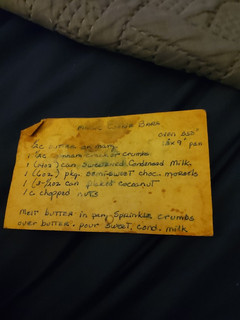 Magic Cookie Bars
oven 350°
½ c butter or marg. 13x9" pan
1 ½ c graham cracker crumbs
1 (14oz) can sweetened Condensed Milk
1 (6oz.) pkg. semi-sweet choc. morsels
1 (3-½oz can flaked coconut
1 c chopped nuts
Melt butter in pan. Sprinkle crumbs
over butter. pour sweet. cond. milk